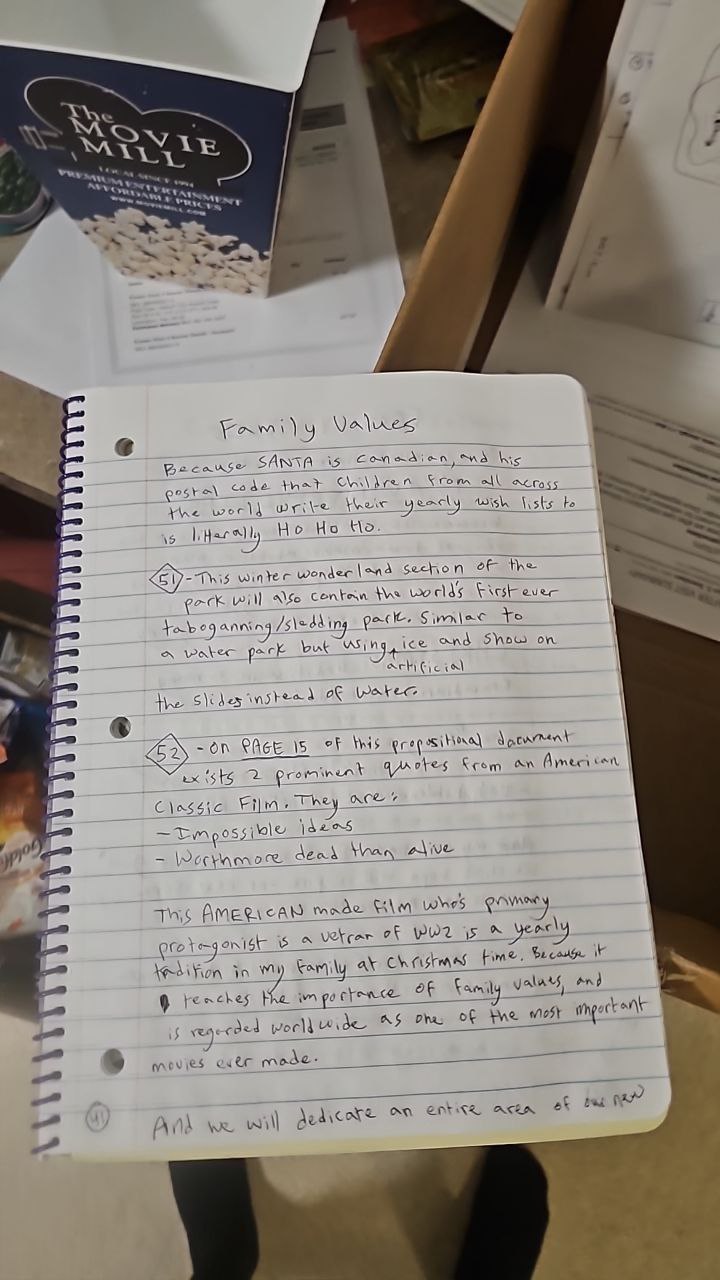 The
MOVIE
MILL
LOCAL SINCE 1994
PREMIUM ENTERTAINMENT
AFFORDABLE PRICES
WWW.MOVIEMILL.COM
Goldfi
Family Values
Because SANTA is Canadian, and his
postal code that children from all across
the world write their yearly wish lists to
is litterally Ho Ho Ho.
51 - This winter wonderland section of the
park will also contain the world's first ever
taboganning/sledding park. Similar to
a water park but using ice and show on
artificial
the slides instead of water.
52 - On PAGE 15 of this propositional document
exists 2 prominent quotes from an American
Classic Film. They are:
- Impossible ideas
- Worthmore dead than alive
This AMERICAN made film who's primary
protagonist is a vetran of WW2 is a yearly
tadition in my family at Christmas time. Because it
teaches the importance of family values, and
is regarded worldwide as one of the most important
movies ever made.
41
And we will dedicate an entire area of our new